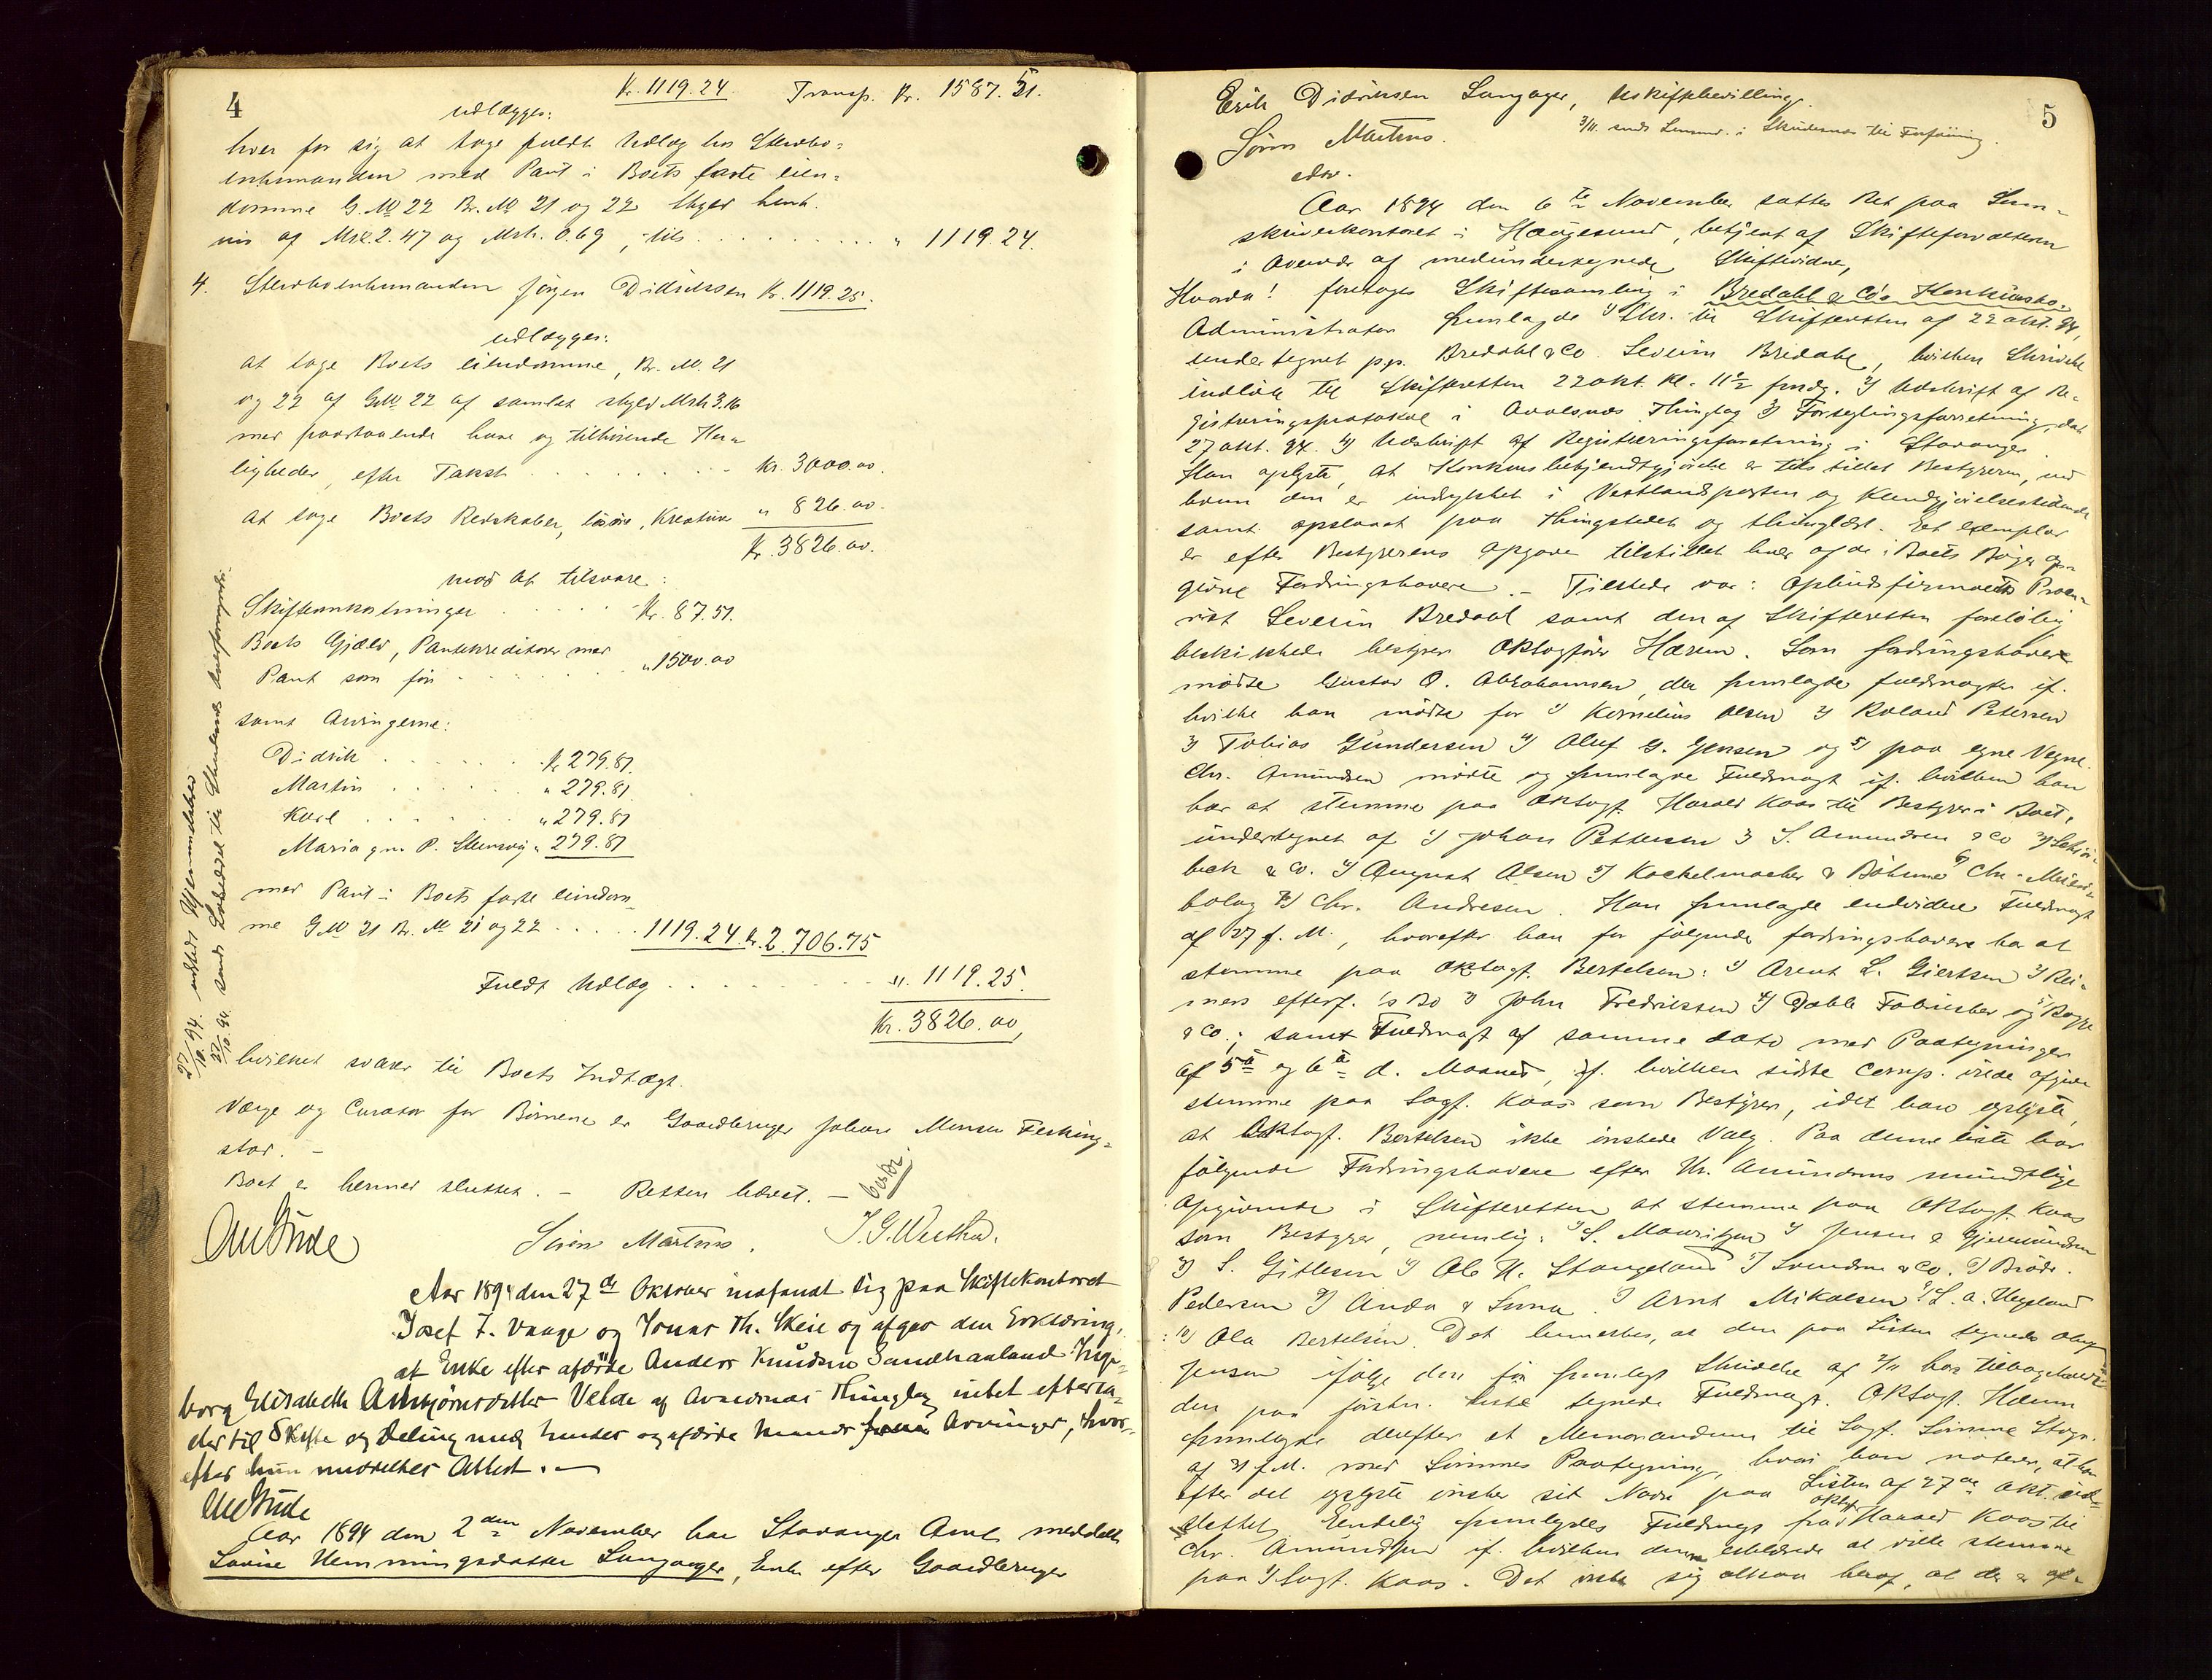 4
Kr. 1119.24. Transp. Kr. 1587.51.
udlægges:
hver for sig at tage fuldt Udlæg hos Stervbo-
enkemanden med Pant i Boets faste eien-
domme G. No 22 Br. No 21 og 22 Skyld henh.
vis af Mrk. 2.47 og Mrk. 0.69, tils. . . . " 1119.24.
4. Stervboenkemanden Jørgen Didriksen Kr. 1119.25.
udlægges:
at tage Boets eiendomme, Br. No. 21
og 22 af G No 22 af samlet skyld Mrk 3.16
med paastaaende huse og tilhørende Her-
ligheder, efter Takst . . . Kr. 3000.00.
at tage Boets Redskaber, løsøre, Kreature " 826.00.
Kr. 3826.00.
mod at tilsvare:
Skifteomkostninger . . . Kr. 87.51.
Boets Gjæld, Pantekreditorer med
Pant som før . . . " 1500.00
samt Arvingerne:
Didrik . . . Kr 279.81.
Martin . . . " 279.81.
Karl . . . " 279.81
Maria gm P. Stensvig " 279.81
med Pant i Boets faste eiendom-
me G No 21 Br. No 21 og 22 . . . 1119.24. Kr. 2.706.75
Fuldt Udlæg . . . " 1119.25.
Kr. 3826.00,
hvilket svarer til Boets Indtægt.
Værge og Curator for Børnene er Gaardbruger Johan Monsen Ferking-
stad. –
Boet er hermed sluttet. – Retten hævet. –
Søren Martens. J. G. Wester.
27/10 94. udstedt Hjemmelsbrev
27/10 94. sendt
Aar 1894 den 27de Oktober indfandt sig paa Skiftekontoret
Josef T. Vaage og Jonas Th. Skeie og afgav den Erklæring,
at Enke efter afdøde Anders Knudsen Sandhaaland Inge-
borg Elisabeth Asbjørnsdatter Velde af Avaldsnæs Thinglag intet efterla-
der til Skifte og Deling med hendes og afdøde Mands Arvinger, hvor-
efter hun meddeltes Attest. –
Aar 1894 den 2den November har Stavanger Amt meddelt
Lovise Hemmingsdatter Langager, Enke efter Gaardbruger
5
Erik Didriksen Langager, Uskiftebevilling.
3/11. sendt Lensmd. i Skudenes til Forføining.
Søren Martens.
edsv.
Aar 1894 den 6te November sattes Ret paa Soren-
skriverkontoret i Haugesund, betjent af Skifteforvalteren
i Overvær af medundertegnede Skiftevidne,
Hvorda! foretoges Skiftesamling i Bredahl & Co's Konkursbo.
Administrator fremlagde 1) Skr. til Skifteretten af 22 okt. 94,
undertegnet p.p. Bredahl & Co. Severin Bredahl, hvilken Skrivelse
indløb til Skifteretten 22 okt. Kl. 11½ fmdg. 2) Udskrift af Re-
gistreringsprotokol i Avalsnæs Thinglag 3) Forseglingsforretning, dat
27 okt. 94. 4) Udskrift af Registreringsforretning i Stavanger.
Han oplyste, at Konkursbekjendtgjørelse er tilstillet Bestyreren, ved
hvem den er indrykket i Vestlandsposten og Kundgjørelsestidende
samt opslaaet paa Thingstedet og thinglæst. Eet exemplar
er efter Bestyrerens Opgave tilstillet hver af de i Boets Bøger op-
givne Fordringshavere. – Tilstede var: Opbudsfirmaets Procu-
rist Severin Bredahl samt den af Skifteretten foreløbig
beskikkede bestyrer Oktsagfører Hærem. Som fordringshavere
mødte Gustav O. Abrahamsen, der fremlagde fuldmagter if.
hvilke han mødte for 1) Kornelius Olsen 2) Roland Petersen
3) Tobias Gundersen 4) Oluf G. Jensen og 5) paa egne Vegne.
Chr. Amundsen mødte og fremlagde Fuldmagt if. hvilken han
har at stemme paa Oktsagf. Harald Kaas til Bestyrer i Boet,
undertegnet af 1) Johan Pettersen 2) S. Amundsen & Co 3)
beck & Co. 4) August Olsen 5) Kochelmacher & Böhme 6) Chr.
bolag 7) Chr. Andresen. Han fremlagde endvidere Fuldmagt
af 27 f. M., hvorefter han for følgende fordringshavere har at
stemme paa Oktsagf. Bertelsen: 1) Arent L. Giertsen 2) Rei-
mers efterf.'s Bo 3) John Fredriksen 4) Dahls Fabrikker og 5)
& Co.; samt Fuldmagt af samme dato med Paategninger
af 5te og 6te d. Maaned, if. hvilken sidste Comp. vilde afgive
stemme paa Sagf. Kaas som Bestyrer, idet han oplyste,
at Oktsagf. Bertelsen ikke ønskede Valg. Paa denne liste har
følgende Fordringshavere efter Hr. Amundsens mundtlige
Opgivende i Skifteretten at stemme paa Oktsagf. Kaas
som Bestyrer, nemlig: 1) S. Mauritzen 2) Jensen & Gjermundsen
3) S. Gitlesen 4) Ole H. Stangeland 5) Svendsen & Co. 6) Brødr.
Pedersen 7) Anda & Sunn. 8) Arnt Mikalsen 9) L. A. Høyland
10) Ola Bertelsen. Det bemærkes, at den paa Listen tegnede Oluf
Jensen ifølge den før fremlagt Skrivelse af 2/11 har tilbagekaldt
den paa førstn. liste tegnede Fuldmagt. Oktsagf. Hærem
fremlagde derefter et Memorandum til Sagf. Sømme Stvgr.
af 31 f. M. med Sømmes Paategning, hvori han noterer, at han
efter det oplyste ønsker sit Navn paa Listen af 27de okt. ud-
slettet. Endelig fremlagdes Fuldmagt fra Oktsgf Harald Kaas til
Chr. Amundsen if. hvilken denne erklærede at ville stemme
paa Sagf. Kaas. Det viste sig altsaa heraf, at der er af-